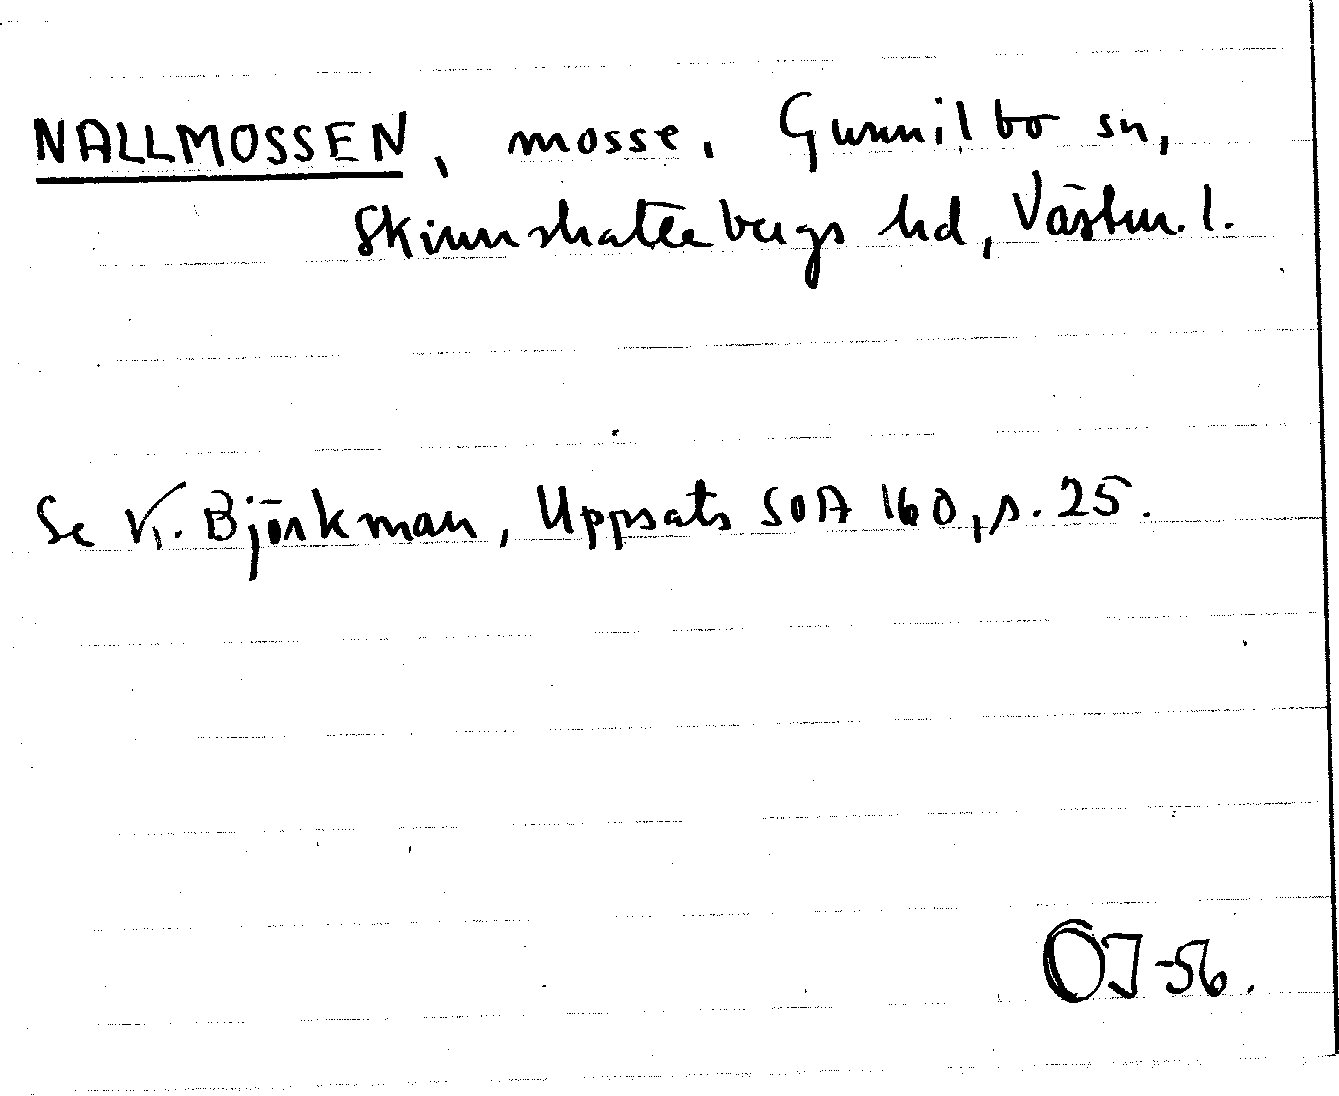 NALLMOSSEN, mosse, Gunnilbo sn,
Skinnskattebergs hd, Västm. l.
Se K. Björkman, Uppsats SOA 160, s. 25.
OJ-56.